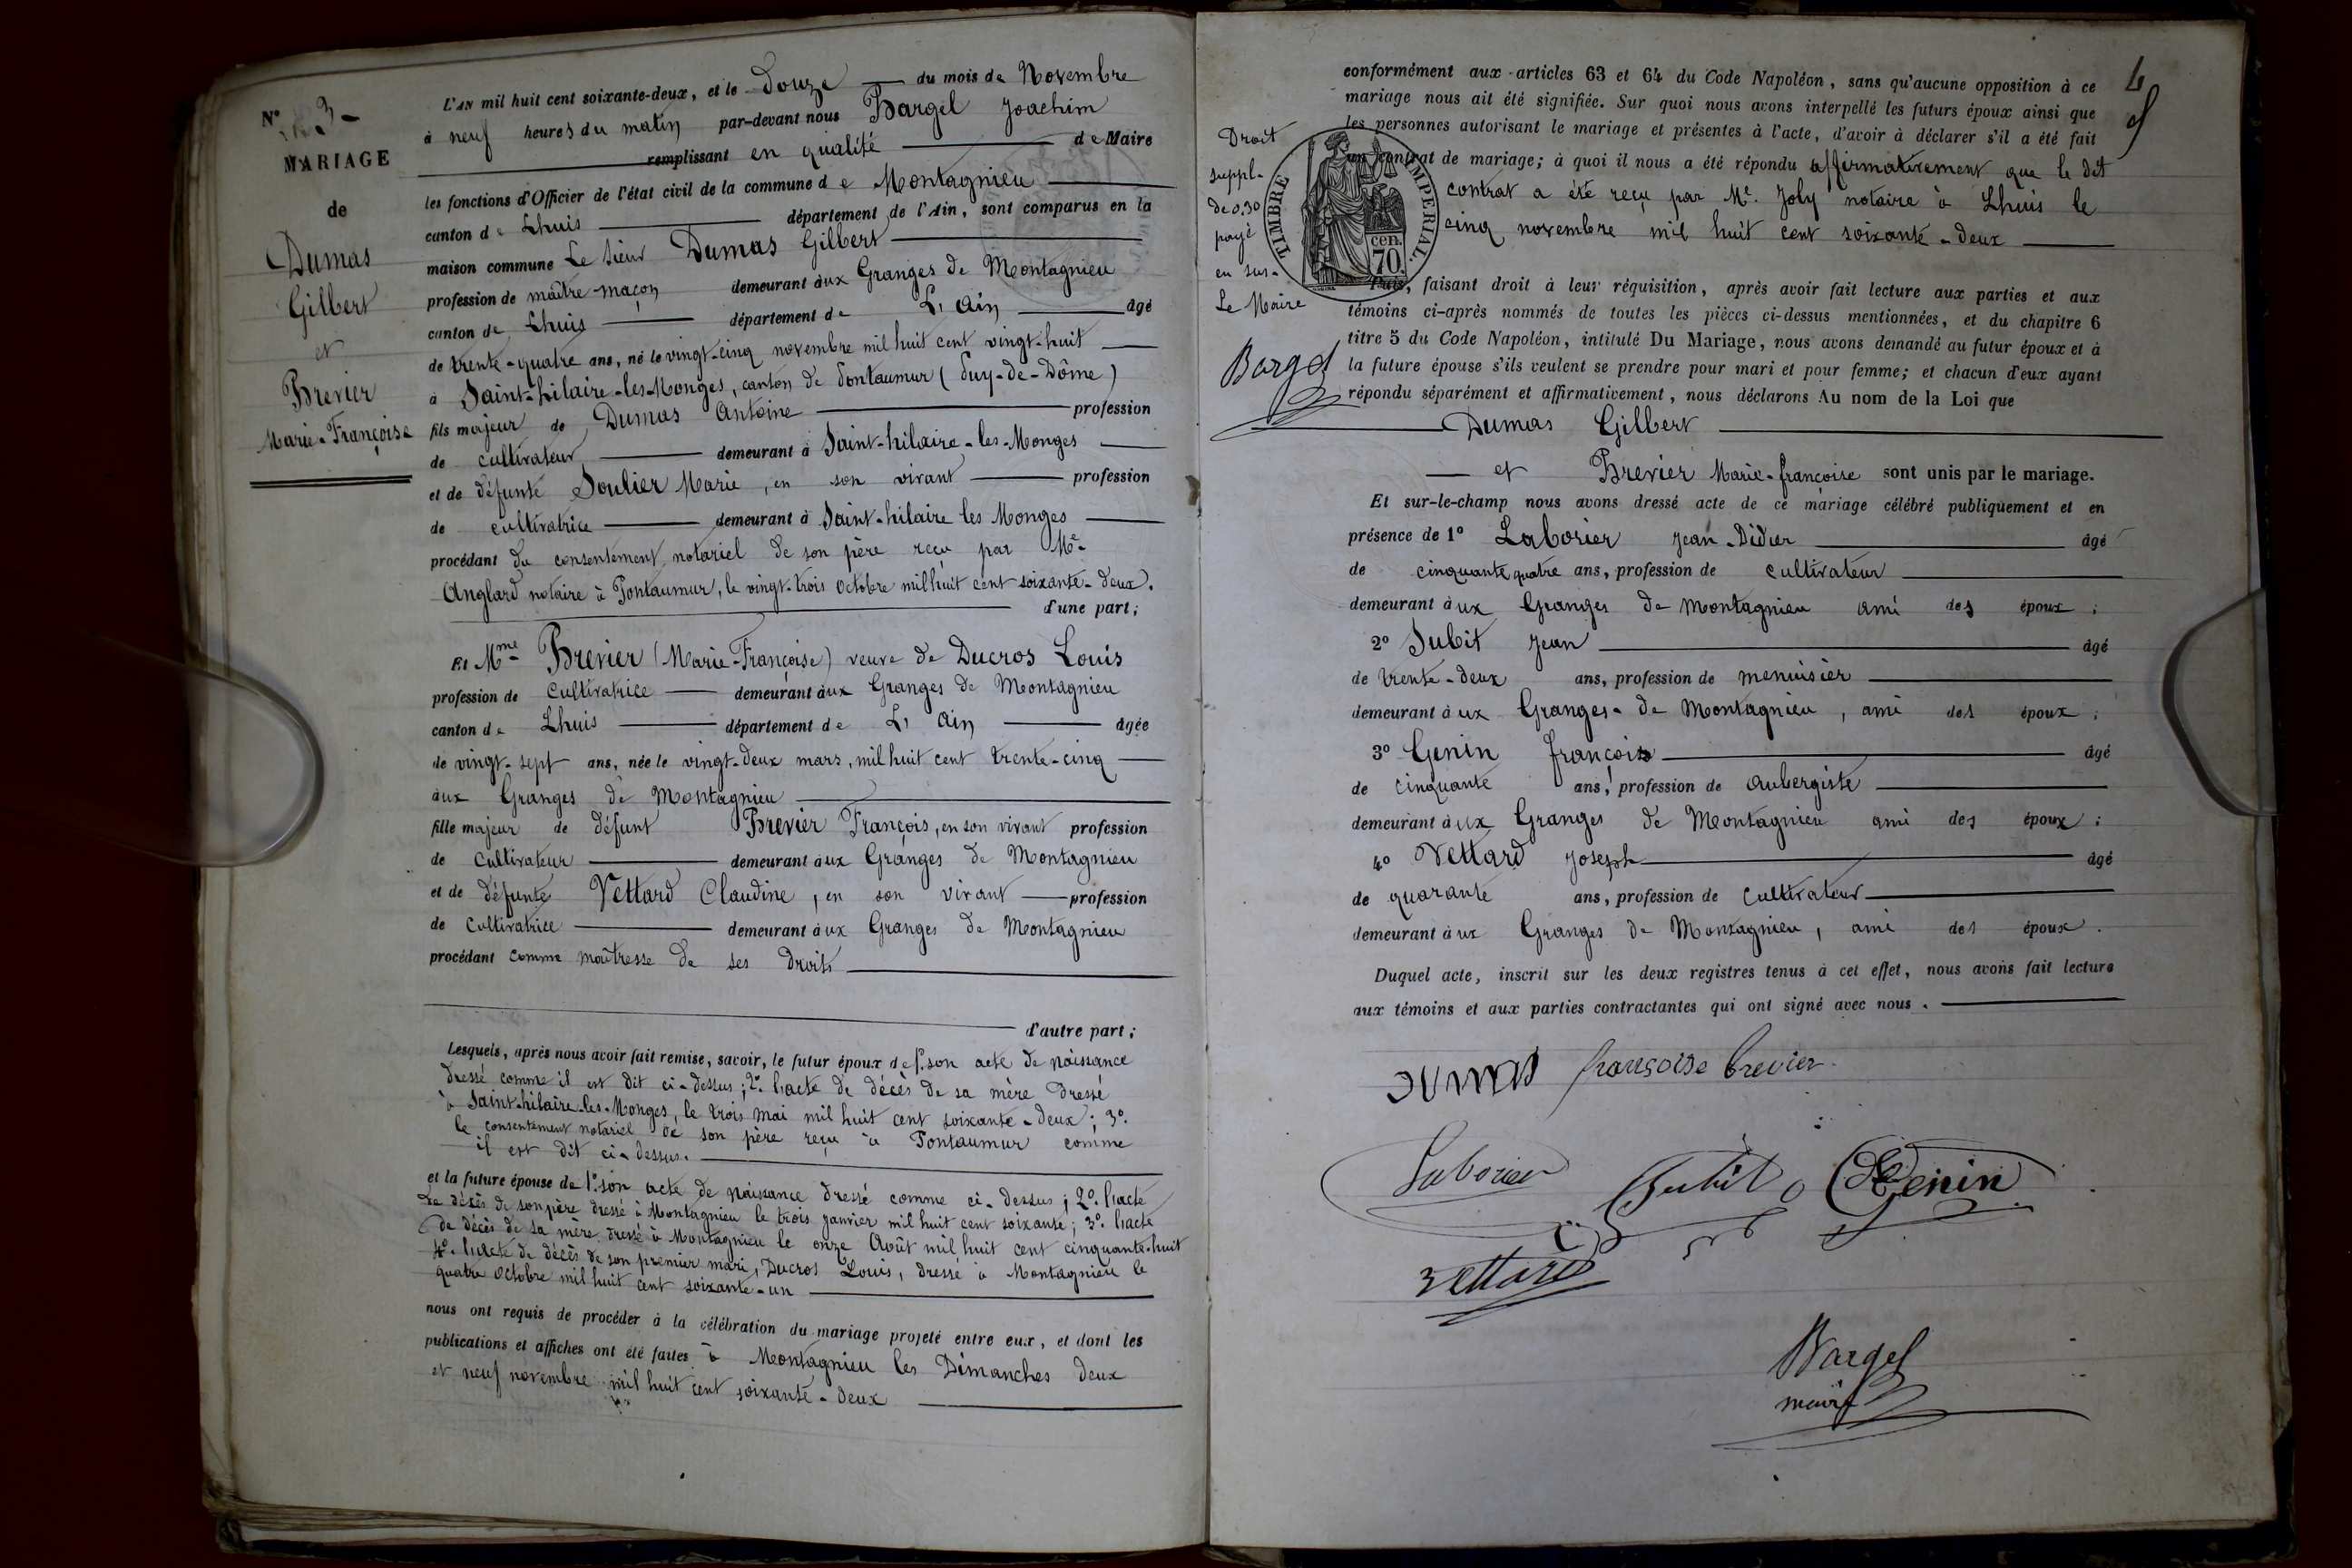 N° 3-
MARIAGE
de
Dumas
Gilbert
et
Brevier
Marie-Françoise
L'AN mil huit cent soixante-deux, et le Douze du mois de Novembre
à neuf heures du matin par-devant nous Bargel Joachim
remplissant en qualité de Maire
les fonctions d'Officier de l'état civil de la commune de Montagnieu
canton de Lhuis département de l'Ain, sont comparus en la
maison commune Le sieur Dumas Gilbert
profession de maître-maçon demeurant aux Granges de Montagnieu
canton de Lhuis département de L'Ain âgé
de trente-quatre ans, né le vingt-cinq novembre mil huit cent vingt-huit
à Saint-hilaire-les-Monges, canton de Pontaumur (Puy-de-Dôme)
fils majeur de Dumas Antoine profession
de cultivateur demeurant à Saint-hilaire-les-Monges
et de défunte Soulier Marie, en son vivant profession
de cultivatrice demeurant à Saint-hilaire les Monges
procédant du consentement notariel de son père reçu par Me
Anglard notaire à Pontaumur, le vingt-trois Octobre mil huit cent soixante-deux.
d'une part;
Et Mme Brevier (Marie-Françoise) veuve de Ducros Louis
profession de Cultivatrice demeurant aux Granges de Montagnieu
canton de Lhuis département de L'Ain âgée
de vingt-sept ans, née le vingt-deux mars, mil huit cent trente-cinq
aux Granges de Montagnieu
fille majeur de défunt Brevier François, en son vivant profession
de Cultivateur demeurant aux Granges de Montagnieu
et de défunte Vettard Claudine, en son vivant profession
de Cultivatrice demeurant aux Granges de Montagnieu
procédant comme maîtresse de ses droits
d'autre part;
Lesquels, après nous avoir fait remise, savoir, le futur époux de 1° son acte de naissance
dressé comme il est dit ci-dessus; 2° l'acte de décès de sa mère dressé
à Saint-hilaire-les-Monges, le trois mai mil huit cent soixante-deux; 3°
le consentement notariel de son père reçu à Pontaumur comme
il est dit ci-dessus.
et la future épouse de 1° son acte de naissance dressé comme ci-dessus; 2° l'acte
de décès de son père dressé à Montagnieu le trois janvier mil huit cent soixante; 3° l'acte
de décès de sa mère dressé à Montagnieu le onze Août mil huit cent cinquante-huit
4° l'acte de décès de son premier mari, Ducros Louis, dressé à Montagnieu le
quatre Octobre mil huit cent soixante-un
nous ont requis de procéder à la célébration du mariage projeté entre eux, et dont les
publications et affiches ont été faites à Montagnieu les Dimanches deux
et neuf novembre mil huit cent soixante-deux
4
conformément aux articles 63 et 64 du Code Napoléon, sans qu'aucune opposition à ce
mariage nous ait été signifiée. Sur quoi nous avons interpellé les futurs époux ainsi que
les personnes autorisant le mariage et présentes à l'acte, d'avoir à déclarer s'il a été fait
un contrat de mariage; à quoi il nous a été répondu affirmativement que le dit
contrat a été reçu par Me. Joly notaire à Lhuis le
cinq novembre mil huit cent soixante-deux
Droit
suppl-
de 0,30
payé
en sus.
Le Maire
Bargel
TIMBRE IMPERIAL.
cen.
70.
Puis, faisant droit à leur réquisition, après avoir fait lecture aux parties et aux
témoins ci-après nommés de toutes les pièces ci-dessus mentionnées, et du chapitre 6
titre 5 du Code Napoléon, intitulé Du Mariage, nous avons demandé au futur époux et à
la future épouse s'ils veulent se prendre pour mari et pour femme; et chacun d'eux ayant
répondu séparément et affirmativement, nous déclarons Au nom de la Loi que
Dumas Gilbert
et Brevier Marie-françoise sont unis par le mariage.
Et sur-le-champ nous avons dressé acte de ce mariage célébré publiquement et en
présence de 1° Laborier Jean-Didier âgé
de cinquante quatre ans, profession de cultivateur
demeurant aux Granges de Montagnieu ami des époux;
2° Subit Jean âgé
de trente-deux ans, profession de menuisier
demeurant aux Granges-de Montagnieu, ami des époux;
3° Genin françois âgé
de cinquante ans, profession de Aubergiste
demeurant aux Granges de Montagnieu ami des époux;
4° Vettard Joseph âgé
de quarante ans, profession de Cultivateur
demeurant aux Granges de Montagnieu, ami des époux.
Duquel acte, inscrit sur les deux registres tenus à cet effet, nous avons fait lecture
aux témoins et aux parties contractantes qui ont signé avec nous.
Dumas françoise brevier
Laborier Subit Genin
Vettard
Bargel
maire